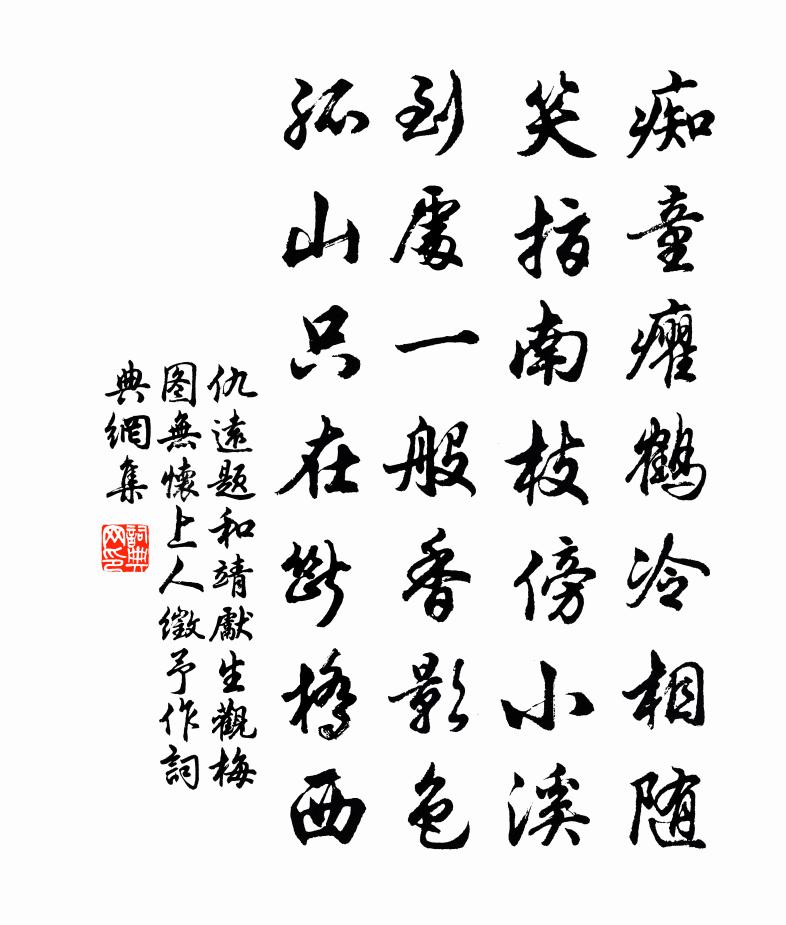 痴童癯鶴冷相随
笑指南枝傍小溪
到處一般香影色
孤山只在斷橋西
仇遠題和靖處士觀梅
图無懷上人徵予作詞
典網集
詞典网印